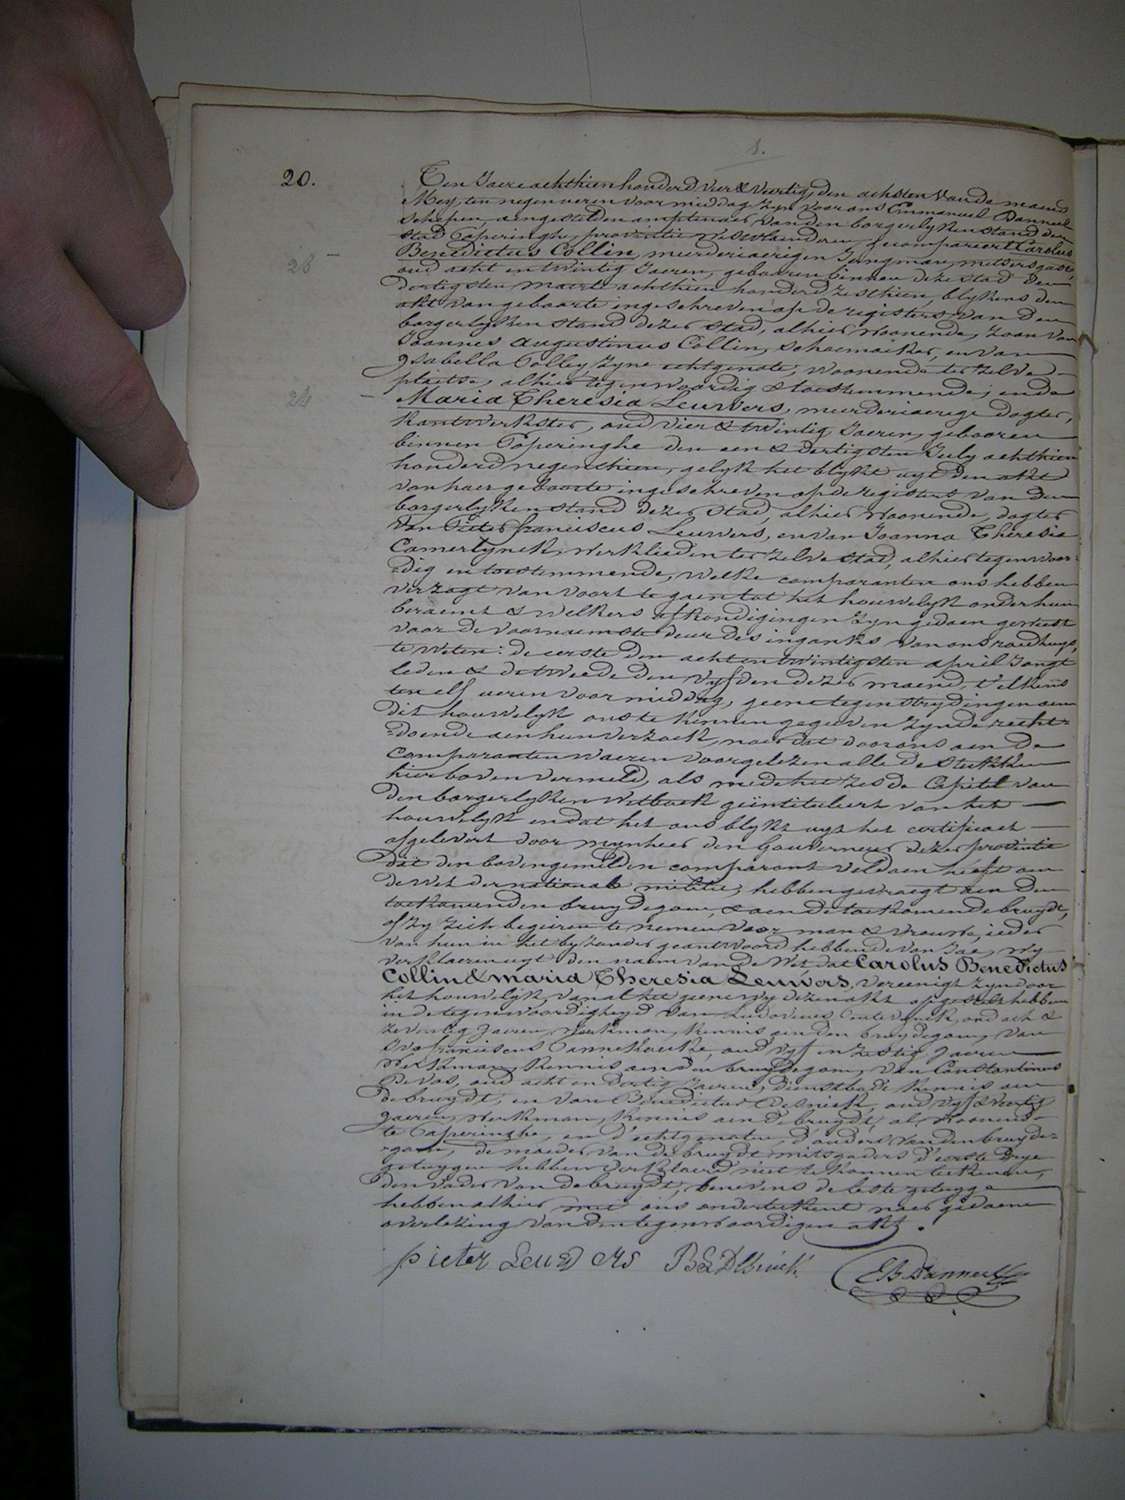 1.
20.
Ten Jaere achthien honderd vier & veertig, den achsten van de maend
Mey, ten negen ueren voormiddag zyn voor ons Emmanuel Danneel
schepen aengestelden amptenaer van den borgerlyken stand der
stad Poperinghe, provintie Westvlaenderen, gecompareert Carolus
Benedictus Collin, meerderjaerigen Jongman, metsersgast,
28 –
oud acht en twintig Jaeren, gebooren binnen deze stad den
dertigsten maerte achthien honderd zesthien, blykens den
akt van geboorte ingeschreven op de registers van den
borgerlyken stand dezer stad, alhier woonende, zoon van
Joannes Augustinus Collin, schoemaeker, en van
Ysabella Colley, zyne echtgenote, woonende ter zelve –
plaetse, alhier tegenwoordig & toestemmende; ende
24 –
Maria Theresia Leuwers, meerderjaerige dogter,
kantwerkster, oud vier & twintig Jaeren, gebooren
binnen Poperinghe den een & dertigsten July achthien
honderd negenthien, gelyk het blykt uyt den akt
van haer geboorte ingeschreven op de registers van den
borgerlyken stand dezer stad, alhier woonende, dogter
van Pieter franciscus Leuwers, en van Joanna Theresia
Camerlynck, werklieden ter zelve stad, alhier tegenwoor-
dig en toestemmende, welke comparanten ons hebben
verzogt van voort te gaen tot het houwelyk onder hun
beraemt & welkers afkondigingen zyn gedaen geweest
voor de voornaemste deur des ingangs van ons raedhuys,
te weten: de eerste den acht en twintigsten april Jongst
leden & de tweede den vyfden dezer maend t'elkens
ten elf ueren voormiddag, geene tegenstrydingen aen
dit houwelyk ons te kennen gegeven zynde, recht
doende aen hun verzoek, naer dat door ons aen de
comparanten waeren voorgelezen alle de stukken
hier boven vermeld, als mede het zesde Capitel van
den borgerlyken Wetboek geïntituleert van het —
houwelyk en dat het ons blykt uyt het certificaet —
afgelevert door mynheer den Gouverneur dezer provintie
dat den bovengemelden comparant voldaen heeft aen
de Wet der nationale militie, hebben gevraegt aen den
toekomenden bruydegom, & aen de toekomende bruydt,
of zy zich begeiren te nemen voor man & vrouw, ieder
van hun in het byzonder geantwoord hebbende van Jae, wy
verklaeren uyt den naem van de Wet dat Carolus Benedictus
Collin & Maria Theresia Leuwers, vereenigt zyn door
het houwelyk, van al het geene wy dezen akt opgestelt hebben
in de tegenwoordigheyd van Ludovicus oud acht &
zeventig Jaeren, werkman, kennis aen den bruydegom, van
franciscus oud vyf en zestig Jaeren
werkman, kennis aen den bruydegom, van Constantinus
Devos, oud acht en dertig Jaeren, dienstbode kennis aen
de bruydt, en van Benedictus oud vyf & veertig
Jaeren, werkman, kennis aen de bruydt, al woonende
te Poperinghe, en d'echtgenoten, d'ouders van den bruyde-
gom, de moeder van de bruydt mitsgaders d'eerste drye
getuygen hebben verklaerd niet te konnen teekenen,
den vader van de bruydt, benevens de leste getuyge
hebben alhier met ons onderteekent naer gedaene
overlezing van den tegenwoordigen akt.
pieter Leuwers